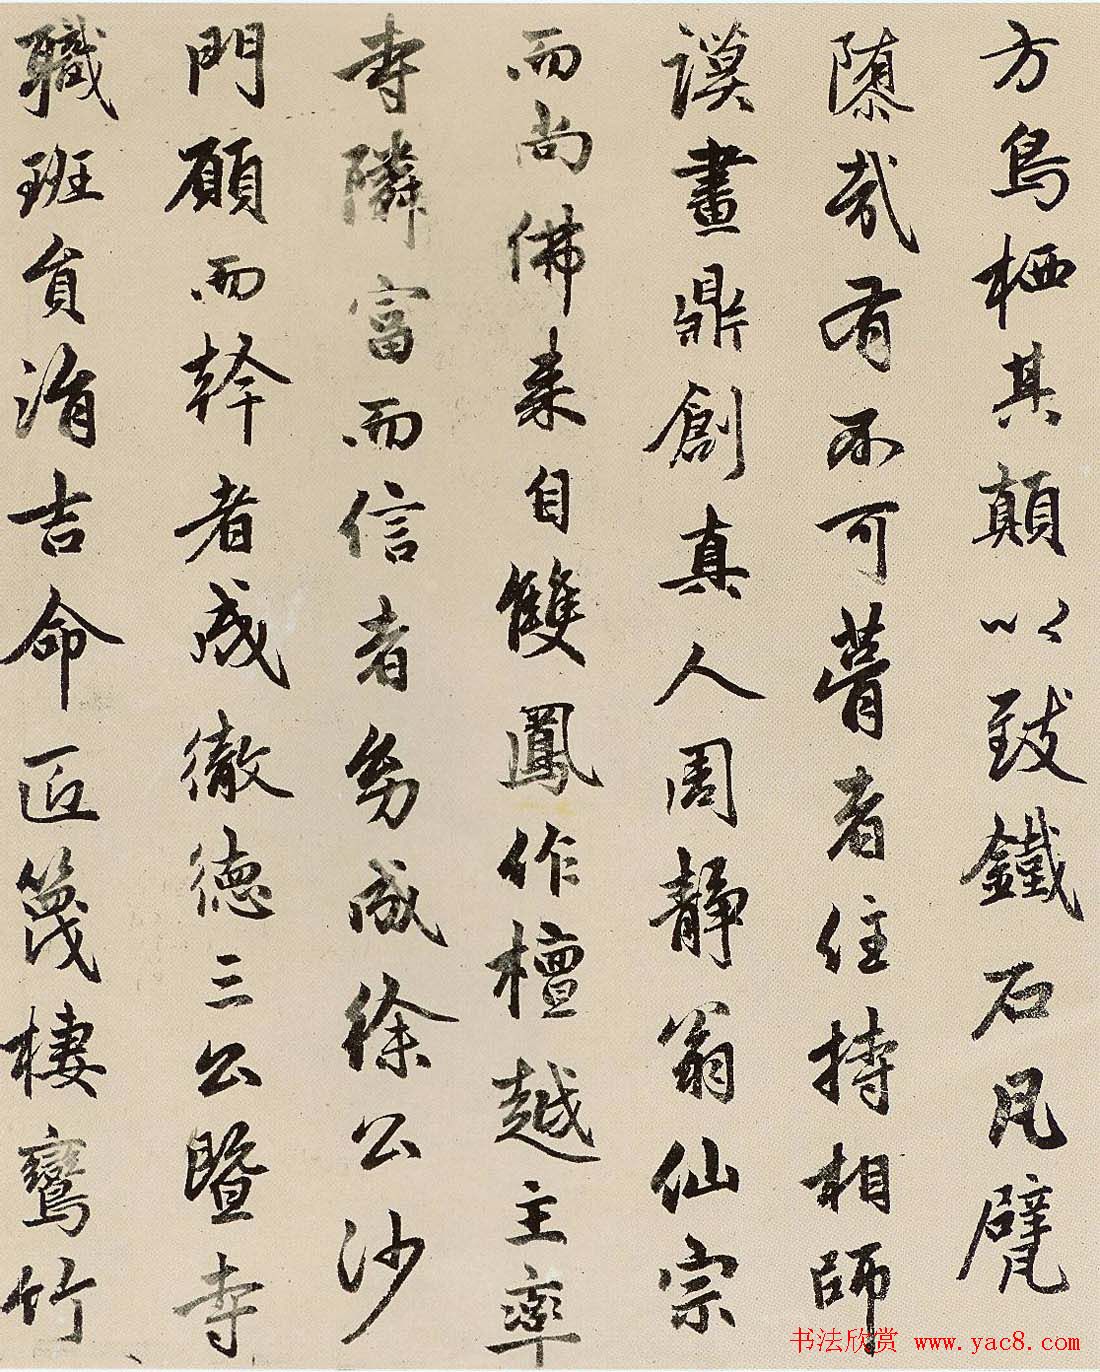 方鳥栖其顛以致鐵石瓦甓
哉有不可者住持相師
謨畫鼎創真人周靜翁仙宗
而尚佛来自雙鳳作檀越主率
寺隣富而信者幼成徐公沙
門願而幹者成徹德三公暨寺
職班貟涓吉命匠篾棲鸞竹
书法欣赏 www.yac8.com